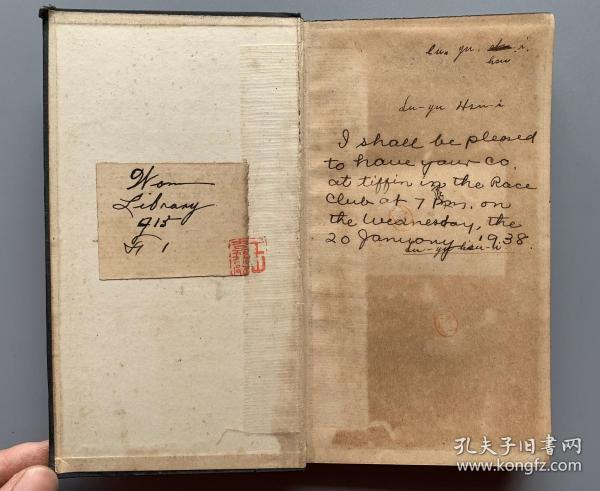 Won
Library
915
F 1
lu. yu. i.
hsu
Lu-yu Hsu-i
I shall be pleased
to have your co.
at tiffin in the Race
Club at 7 P.m. on
the Weanesday, the
20 Janyony 1938
Lu-yu hsu-i
孔夫子旧书网
www.kongfz.com